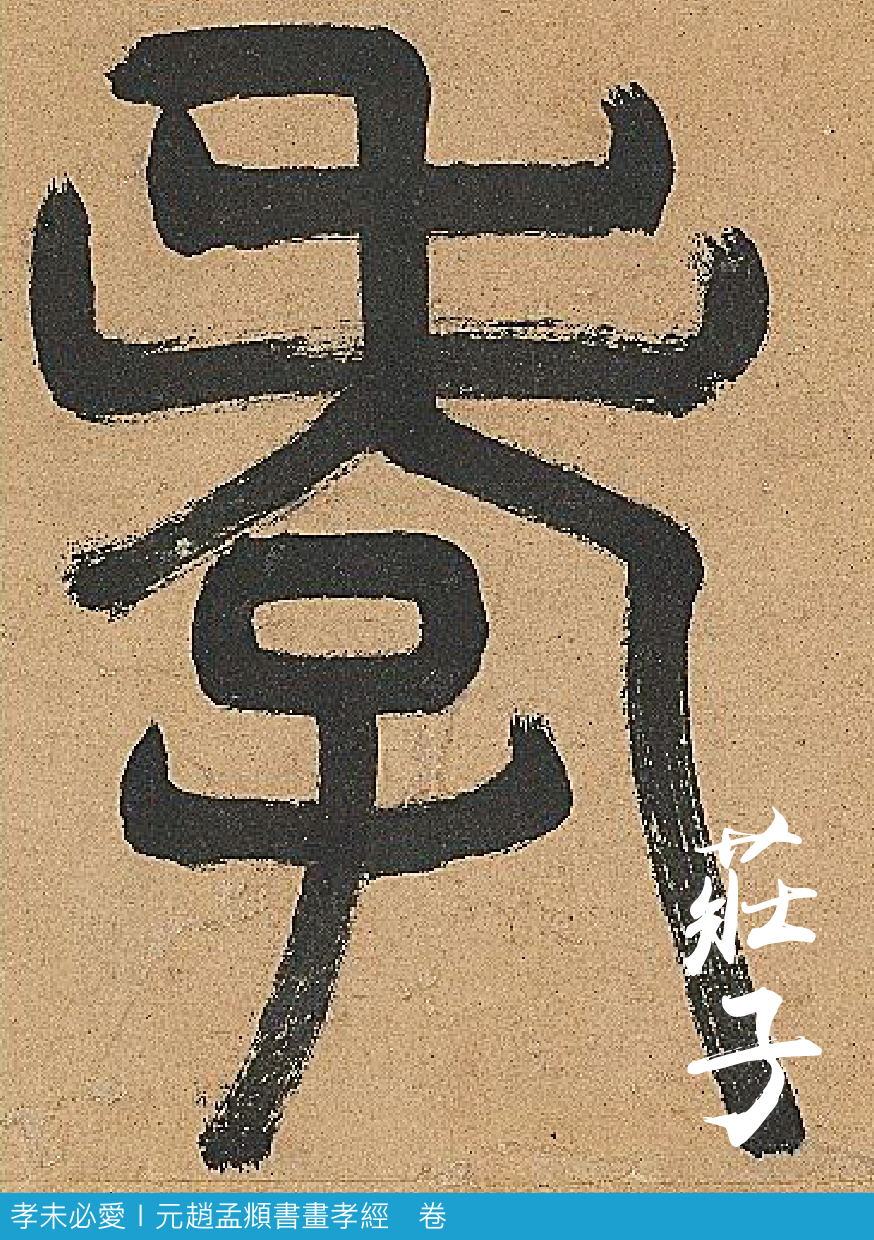 孝
莊子
孝未必愛|元趙孟頫書畫孝經　卷